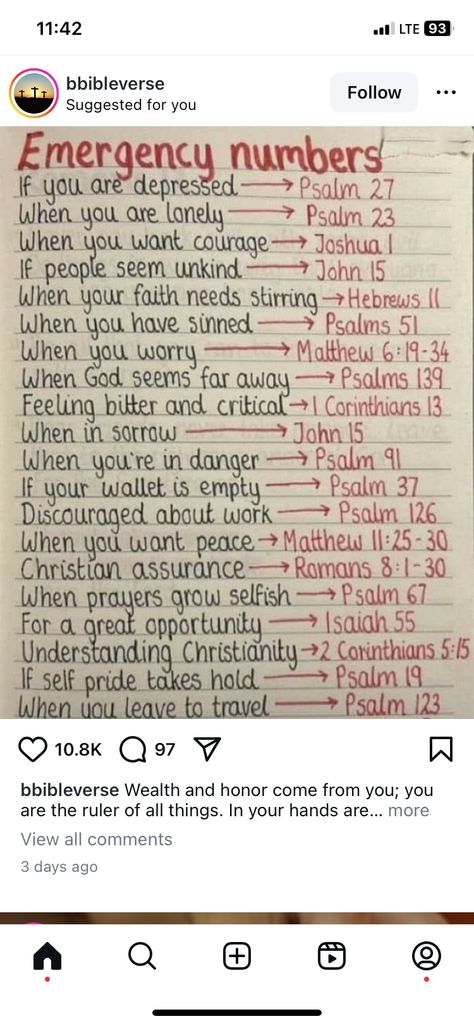 11:42
LTE 93
bbibleverse
Suggested for you
Follow
Emergency numbers
If you are depressed → Psalm 27
When you are lonely → Psalm 23
When you want courage → Joshua 1
If people seem unkind → John 15
When your faith needs stirring → Hebrews 11
When you have sinned → Psalms 51
When you worry → Matthew 6:19-34
When God seems far away → Psalms 139
Feeling bitter and critical → 1 Corinthians 13
When in sorrow → John 15
When you're in danger → Psalm 91
If your wallet is empty → Psalm 37
Discouraged about work → Psalm 126
When you want peace → Matthew 11:25-30
Christian assurance → Romans 8:1-30
When prayers grow selfish → Psalm 67
For a great opportunity → Isaiah 55
Understanding Christianity → 2 Corinthians 5:15
If self pride takes hold → Psalm 19
When you leave to travel → Psalm 123
10.8K 97
bbibleverse Wealth and honor come from you; you
are the ruler of all things. In your hands are... more
View all comments
3 days ago